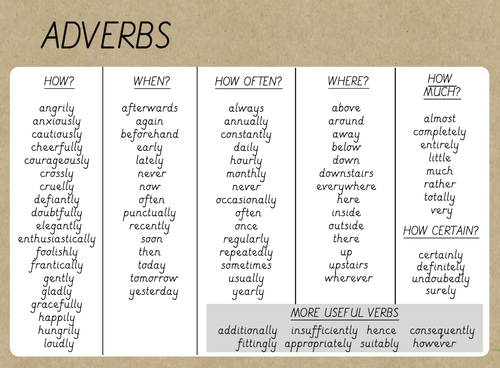 ADVERBS
HOW?
angrily
anxiously
cautiously
cheerfully
courageously
crossly
cruelly
defiantly
doubtfully
elegantly
enthusiastically
foolishly
frantically
gently
gladly
gracefully
happily
hungrily
loudly
WHEN?
afterwards
again
beforehand
early
lately
never
now
often
punctually
recently
soon
then
today
tomorrow
yesterday
HOW OFTEN?
always
annually
constantly
daily
hourly
monthly
never
occasionally
often
once
regularly
repeatedly
sometimes
usually
yearly
WHERE?
above
around
away
below
down
downstairs
everywhere
here
inside
outside
there
up
upstairs
wherever
HOW
MUCH?
almost
completely
entirely
little
much
rather
totally
very
HOW CERTAIN?
certainly
definitely
undoubedly
surely
MORE USEFUL VERBS
additionally insufficiently hence consequently
fittingly appropriately suitably however